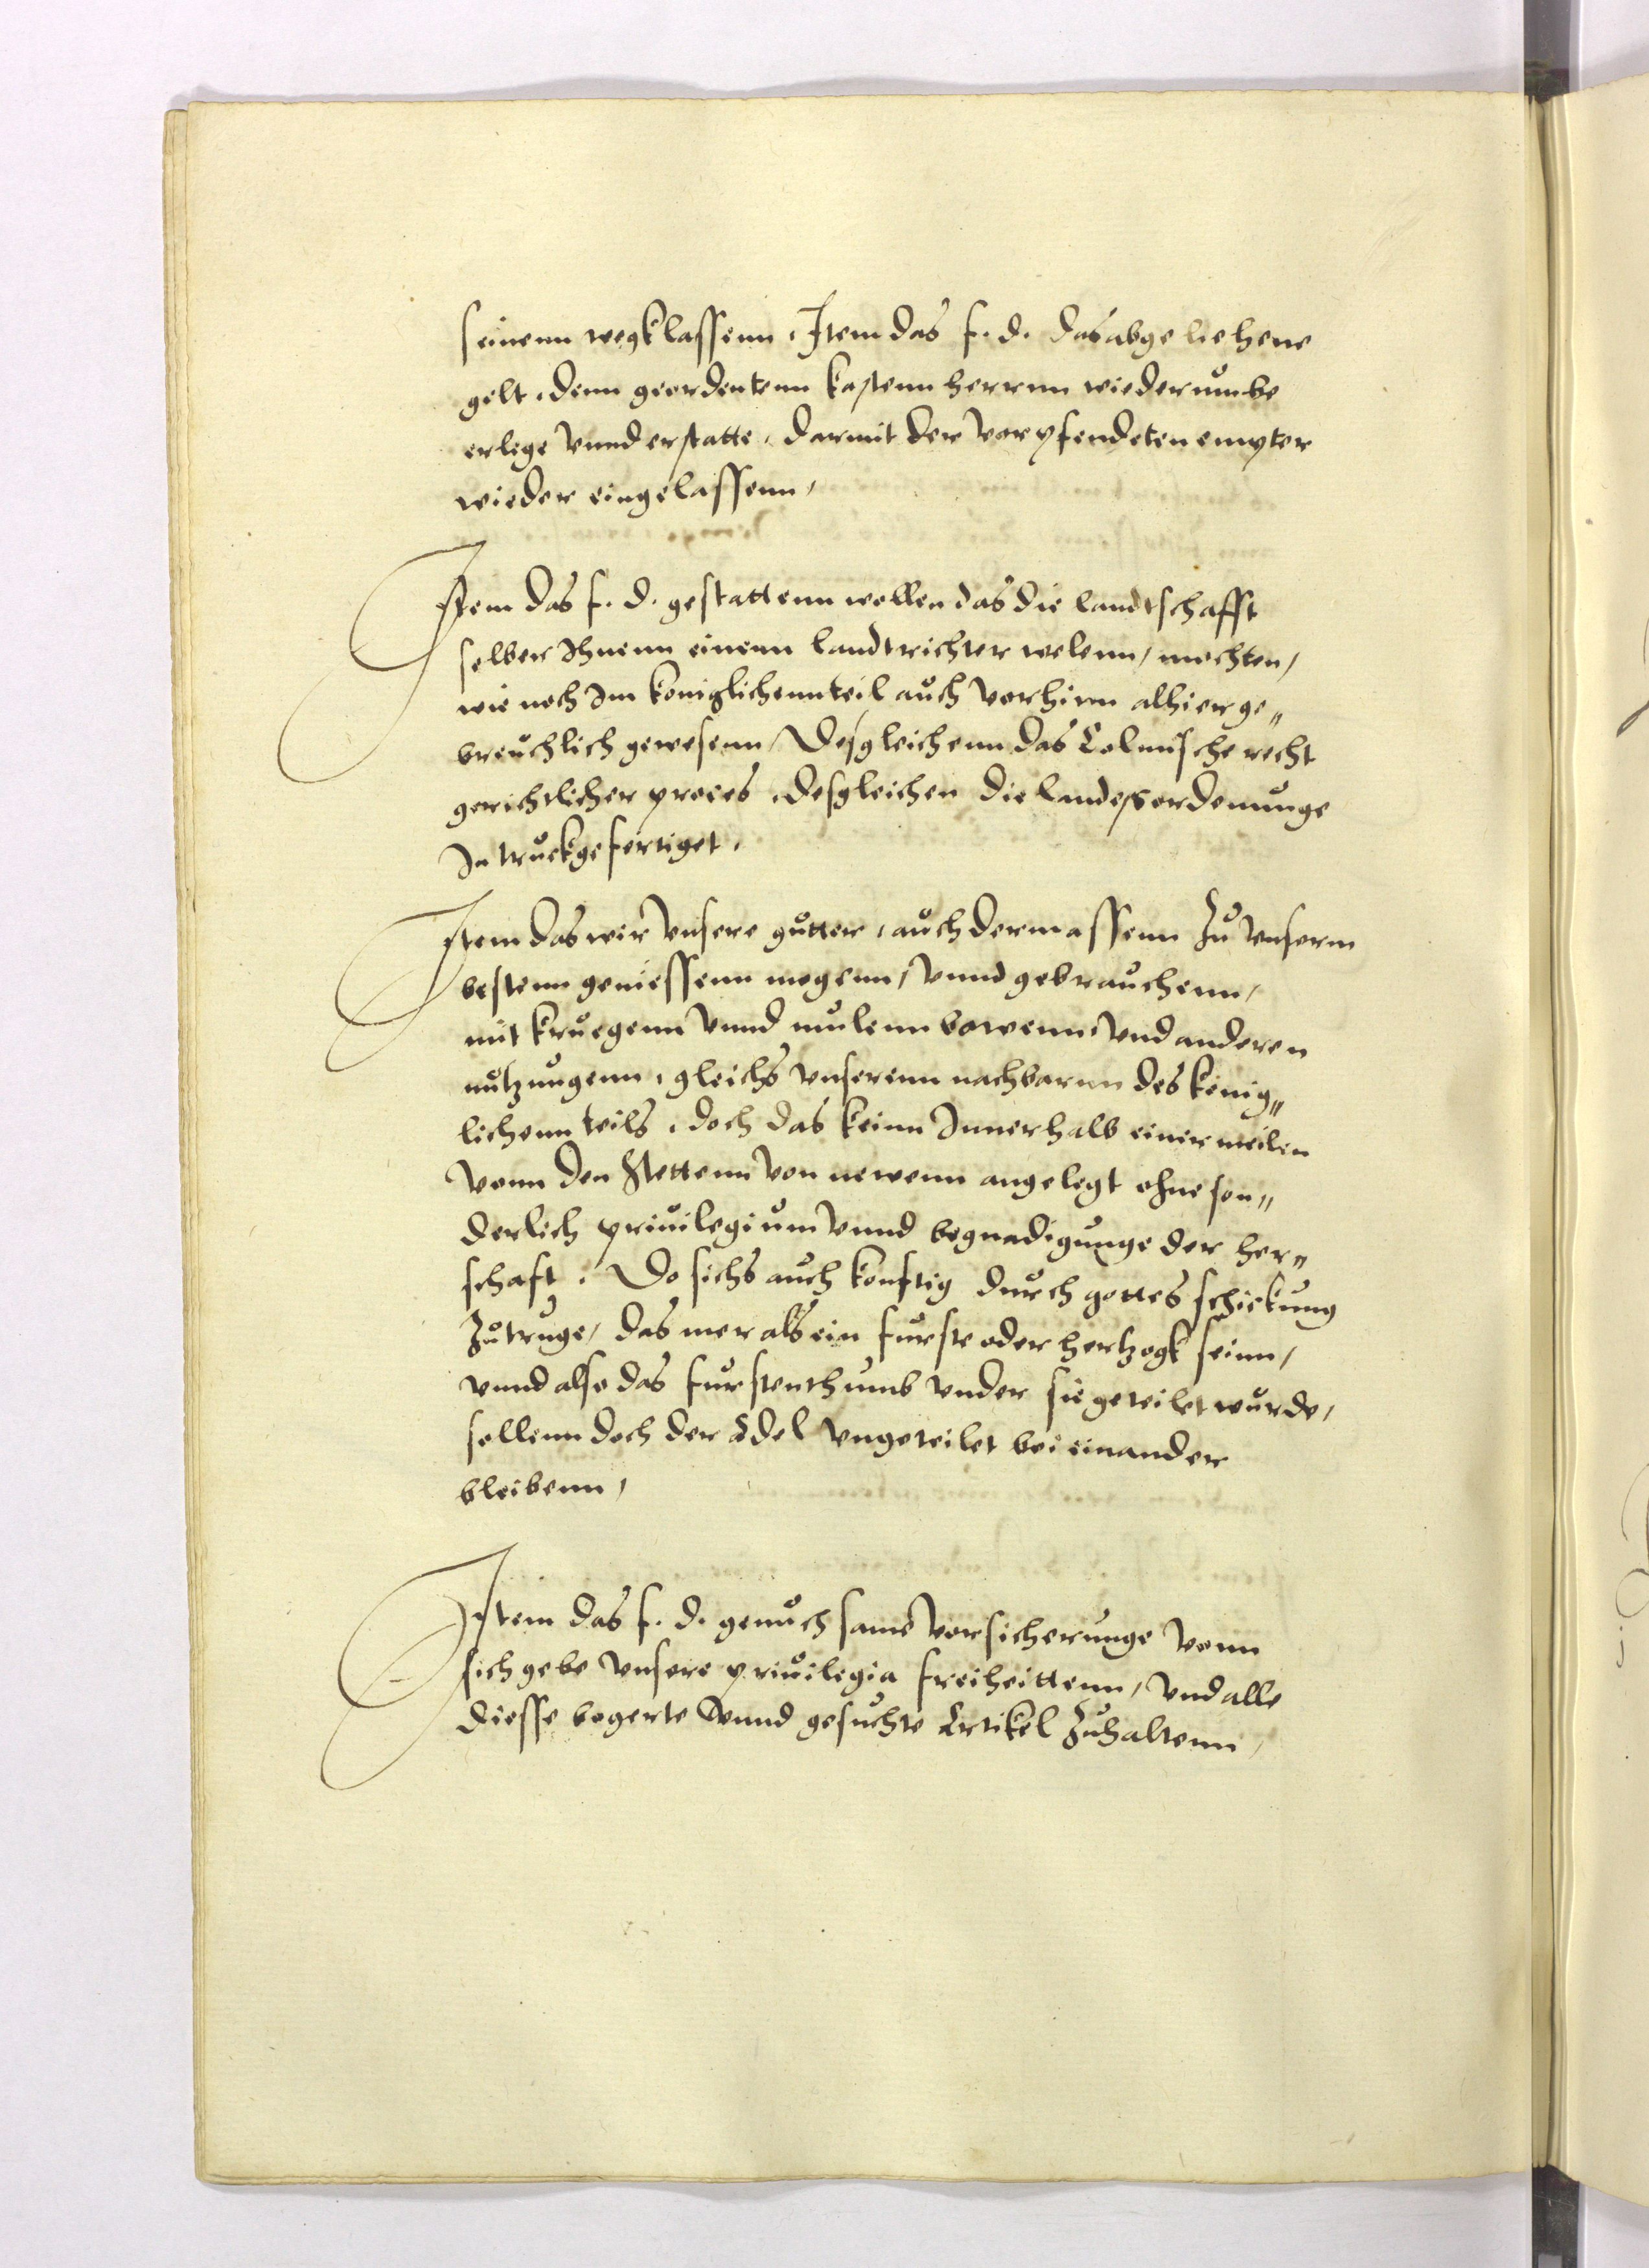 seinenn wegk lassenn, Item das f. d. das abgeliehene
gelt, denn geordentenn kastenn herrnn wiederumbe
erlege vnnd erstatte, darmit der vorpfendeten empter
wieder eingelassenn,
Item das f. d. gestattenn wollen das die landtschafft
selber Ihnenn einenn landtrichter welenn, mochten,
wie noch Im koniglichenn teil auch vorhinn alhier ge„
breuchlich gewesenn, Desgleichenn das Colmische recht
gerichtlicher proces, desgleichen die landesordenunge
In truckgefertiget,
Item das wir vnsere gutter, auch dermassenn zu vnserm
bestenn geniessenn mogenn, vnnd gebrauchenn,
mit kruegenn vnnd mulenn bawenn, vnd anderen
nutzungenn, gleichs vnserenn nachbarnn des konig„
lichenn teils, doch das keinn Innerhalb einer meilen
vonn den Stettenn von newenn angelegt ohne son„
derlich priuilegium vnnd begnadigunge der her„
schaft, Do sichs auch konftig durch gottes schickung
zutruge, das mer als ein furste oder hertzogk seinn,
vnnd also das furstenthumb vnder sie geteilet wurde,
sollenn doch der Adel vngeteilet bei einander
bleibenn,
Item das f. d. genuchsame vorsicherunge vonn
sich gebe vnsere priuilegia freiheittenn, vnd alle
diesse begerte vnnd gesuchte Artikel zuhaltenn,